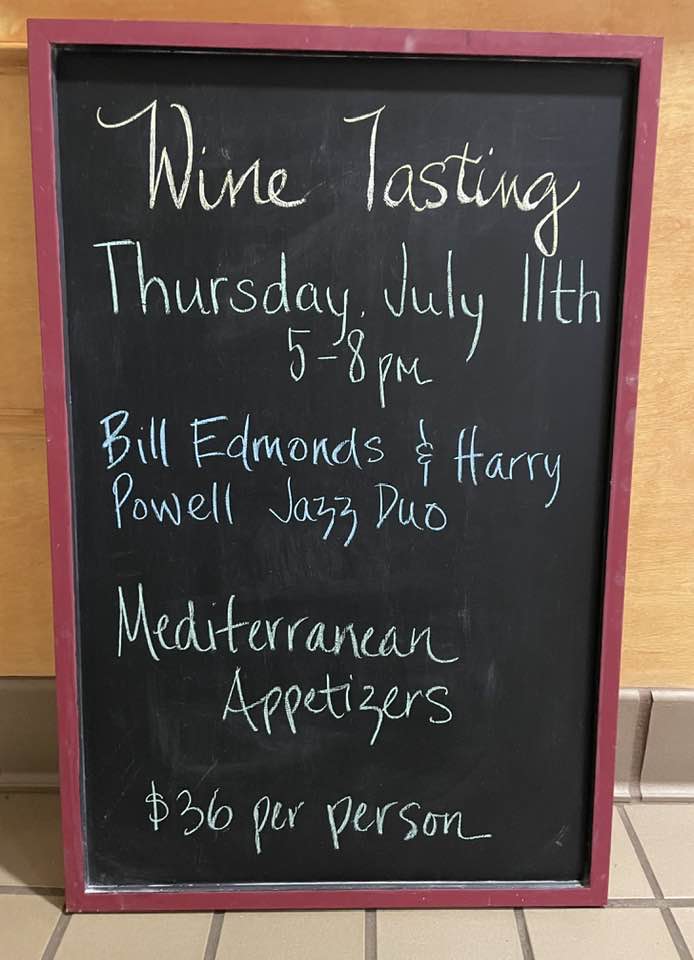 Wine Tasting
Thursday, July 11th
5-8pm
Bill Edmonds & Harry
Powell Jazz Duo
Mediterranean
Appetizers
$36 per person